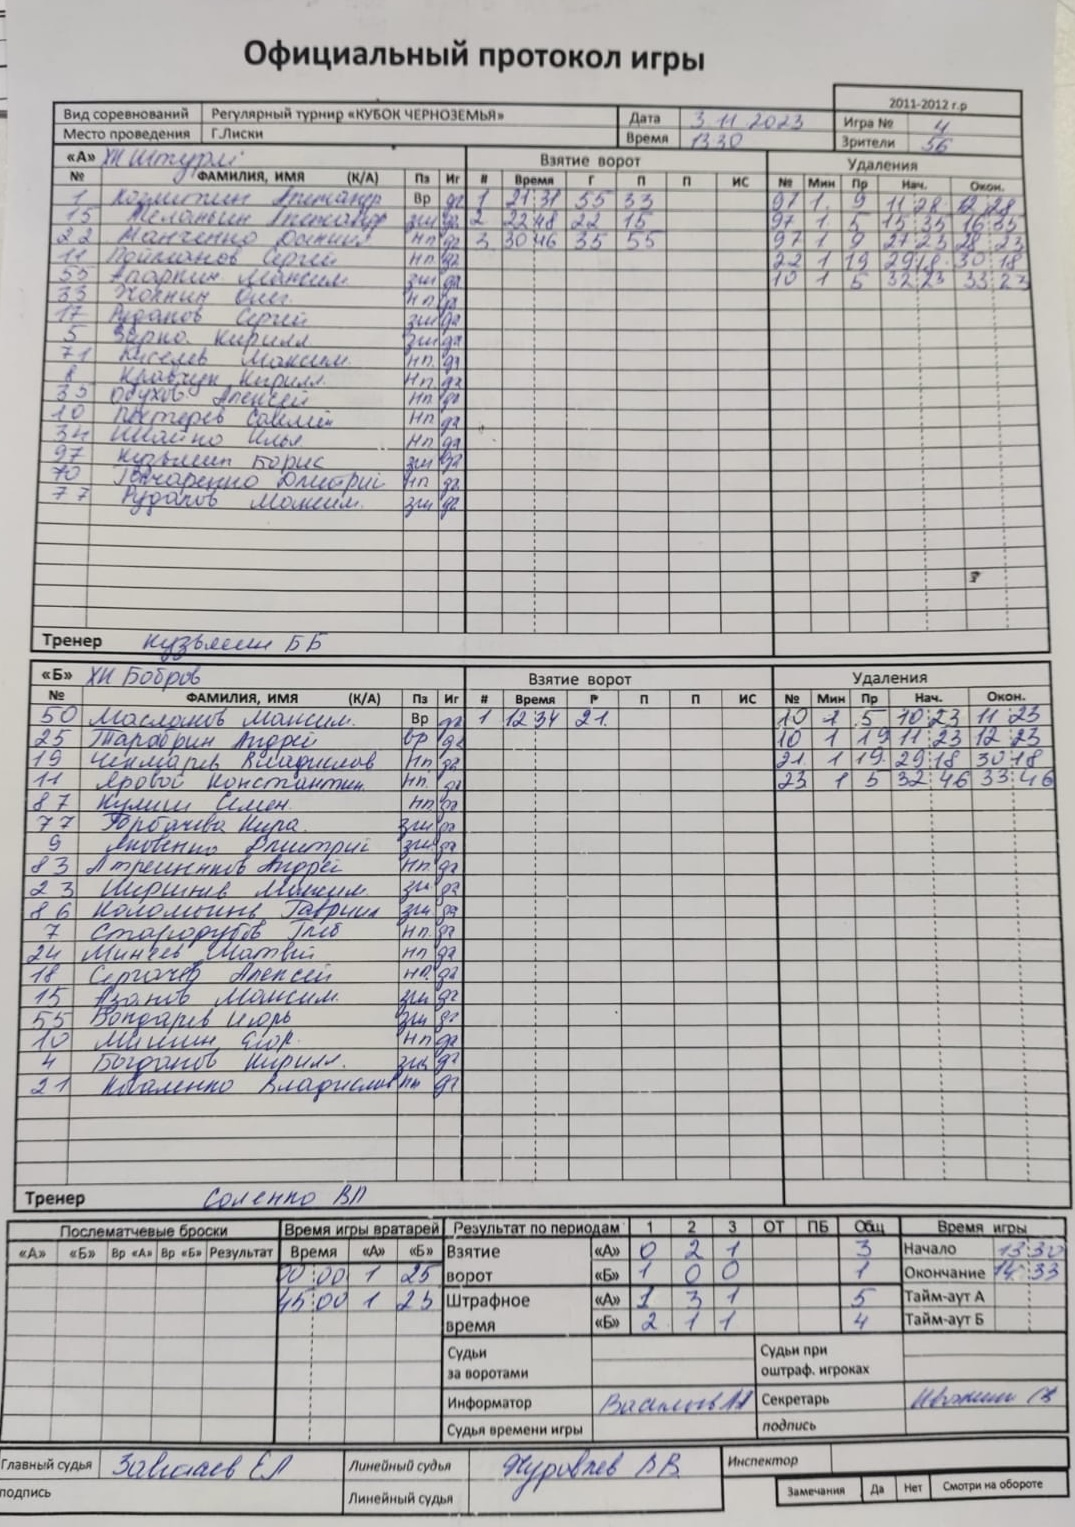 Официальный протокол игры
2011-2012 г.р
Вид соревнований Регулярный турнир «КУБОК ЧЕРНОЗЕМЬЯ» Дата 3.11.2023 Игра № 4
Место проведения Г.Лиски Время 13 30 Зрители 56
«А» ХК Штурм Взятие ворот Удаления
№ ФАМИЛИЯ, ИМЯ (К/А) Пз Иг # Время Г П П ИС № Мин Пр Нач. Окон.
1 Александр Вр да 1 21:31 55 33 97 1 9 11:28 12:28
15 Александр зщ да 2 22:48 22 15 97 1 5 15:35 16:35
22 Нп да 3 30:46 35 55 97 1 9 27:23 28:23
11 Сергей Нп да 22 1 19 29:18 30:18
55 Максим зщ да 10 1 5 32:23 33:23
33 Олег Нп да
17 Рудаков Сергей зщ да
5 Кирилл зщ да
71 Киселев Максим Нп да
8 Кравчук Кирилл Нп да
35 Обухов Алексей Нп да
10 Нп да
34 Илья Нп да
97 Кузьмин Борис зщ да
70 Гончаренко Дмитрий Нп да
77 Рудаков Максим зщ да
Тренер Кузьмин Б Б
«Б» ХК Бобров Взятие ворот Удаления
№ ФАМИЛИЯ, ИМЯ (К/А) Пз Иг # Время Г П П ИС № Мин Пр Нач. Окон.
50 Масланов Максим. Вр да 1 12:34 21. 10 1 5 10:23 11:23
25 Тарабрин Андрей вр да 10 1 19 11:23 12:23
19 Чекмарев Владислав Нп да 21 1 19 29:18 30:18
11 Яровой Константин Нп да 23 1 5 32:46 33:46
87 Кулиш Семен. Нп да
77 Горбачева Кира зщ да
9 Яковенко Дмитрий зщ да
83 Андрей Нп да
23 Ширинев Максим зщ да
86 Гавриил зщ да
7 Стародубов Глеб Нп да
24 Матвей Нп да
18 Сергачев Алексей Нп да
15 Азанов Максим. зщ да
55 Бондарев Игорь зщ да
10 Милкин Егор. Нп да
4 Богданов Кирилл. зщ да
21 Коваленко Владислав Нп да
Тренер Соленко ВП
Послематчевые броски Время игры вратарей Результат по периодам 1 2 3 ОТ ПБ Общ Время игры
«А» «Б» Вр «А» Вр «Б» Результат Время «А» «Б» Взятие «А» 0 2 1 3 Начало 13:30
00:00 1 25 ворот «Б» 1 0 0 1 Окончание 14:33
45:00 1 25 Штрафное «А» 1 3 1 5 Тайм-аут А
время «Б» 2 1 1 4 Тайм-аут Б
Судьи за воротами Судьи при оштраф. игроках
Информатор Секретарь
Судья времени игры подпись
Главный судья Линейный судья Инспектор
подпись Линейный судья Замечания Да Нет Смотри на обороте